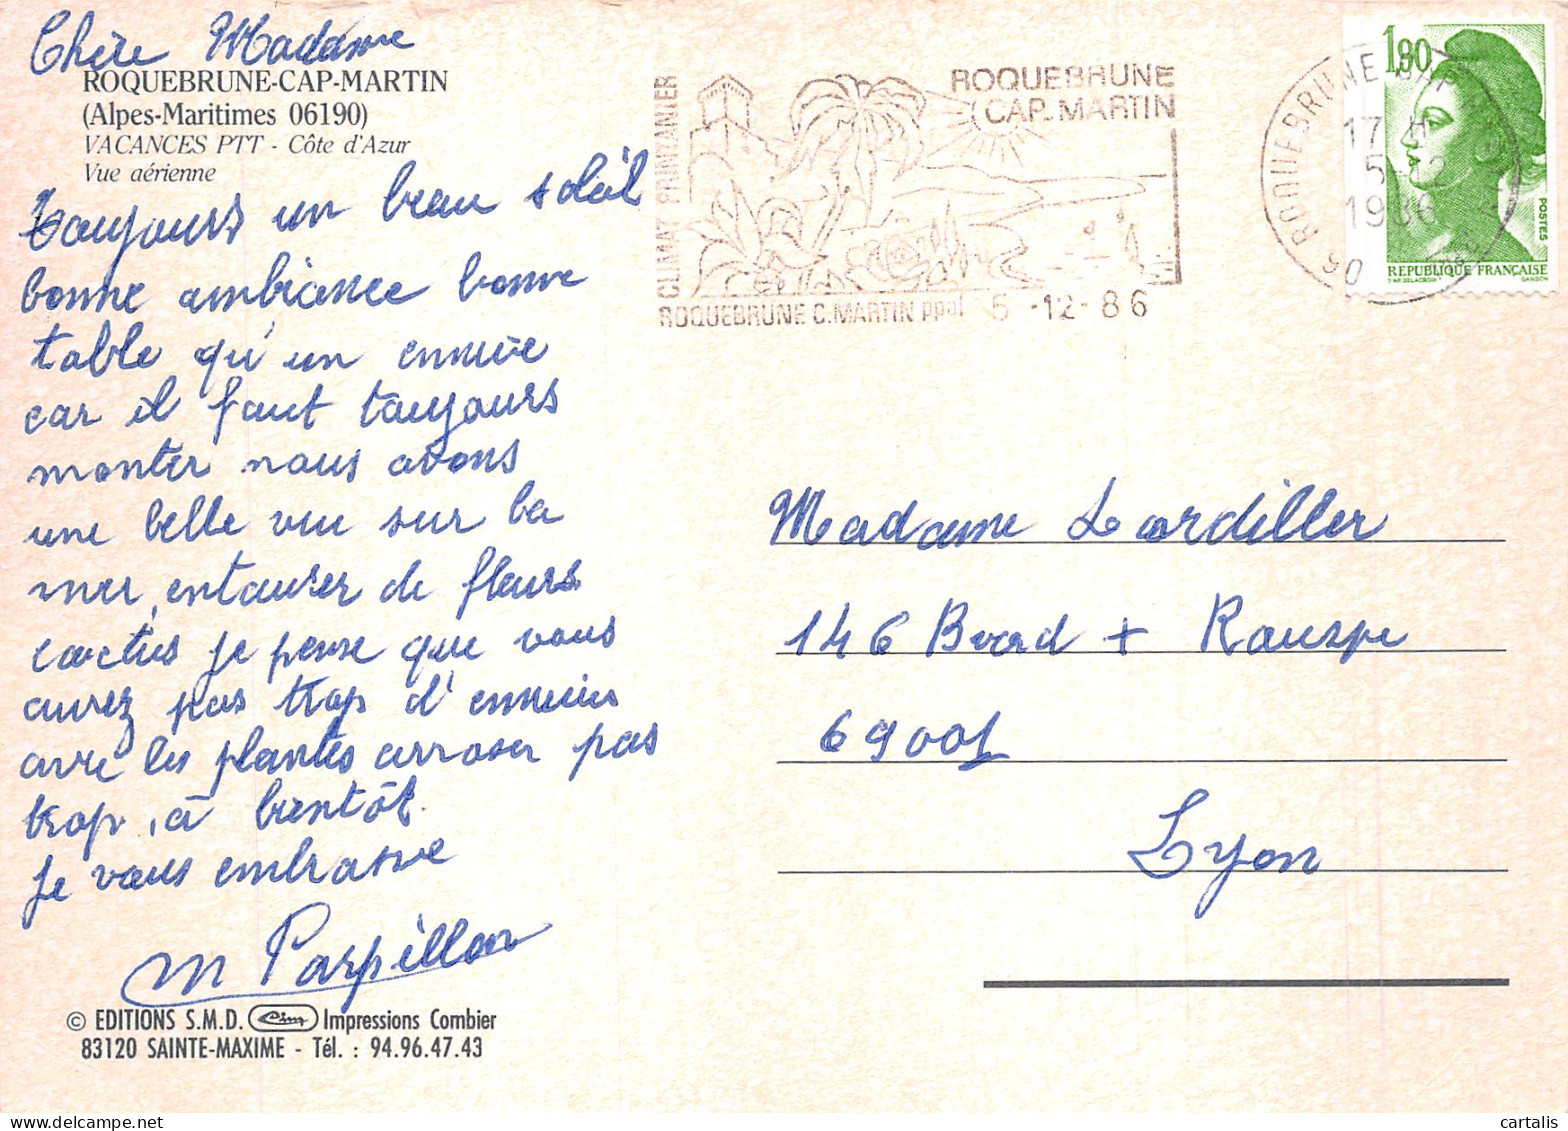 Chère Madame
ROQUEBRUNE-CAP-MARTIN
(Alpes-Maritimes 06190)
VACANCES PTT - Côte d'Azur
Vue aérienne
Toujours un beau soleil
bonne ambiance bonne
table qu'un ennuie
car il faut toujours
monter nous avons
une belle vue sur la
mer, entourer de fleurs
cactus je pense que vous
aurez pas trop d'ennuies
avec les plantes arroser pas
trop, à bientôt.
Je vous embrasse
m Parpillon
© EDITIONS S.M.D. Cim Impressions Combier
83120 SAINTE-MAXIME - Tél. : 94.96.47.43
CLIMAT PRINTANIER
ROQUEBRUNE
CAP. MARTIN
ROQUEBRUNE C. MARTIN ppal 5 -12- 86
ROQUEBRUNE CAP
17 H
5 -12
1986
06
1,90
POSTES
REPUBLIQUE FRANÇAISE
D'AP. DELACROIX GANDON
Madame Lardiller
146 Bvard + Rousse
69001
Lyon
cartalis